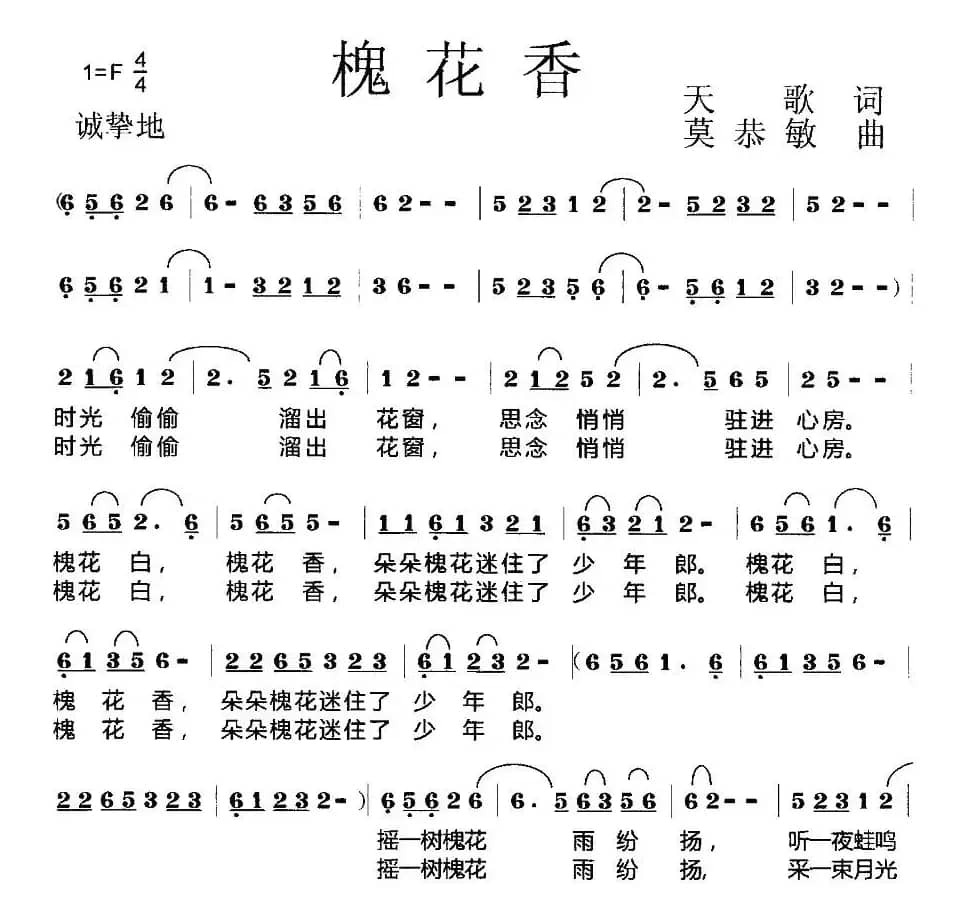 槐花香
1=F 4/4
诚挚地
天 歌 词
莫恭敏 曲
(6 5 6 2 6 | 6 - 6 3 5 6 | 6 2 - - | 5 2 3 1 2 | 2 - 5 2 3 2 | 5 2 - - |
6 5 6 2 1 | 1 - 3 2 1 2 | 3 6 - - | 5 2 3 5 6 | 6 - 5 6 1 2 | 3 2 - - ) |
2 1 6 1 2 | 2 . 5 2 1 6 | 1 2 - - | 2 1 2 5 2 | 2 . 5 6 5 | 2 5 - - |
时光 偷偷 溜出 花窗， 思念 悄悄 驻进 心房。
时光 偷偷 溜出 花窗， 思念 悄悄 驻进 心房。
5 6 5 2 . 6 | 5 6 5 5 - | 1 1 6 1 3 2 1 | 6 3 2 1 2 - | 6 5 6 1 . 6 |
槐花 白， 槐花 香， 朵朵槐花迷住了 少 年 郎。 槐花 白，
槐花 白， 槐花 香， 朵朵槐花迷住了 少 年 郎。 槐花 白，
6 1 3 5 6 - | 2 2 6 5 3 2 3 | 6 1 2 3 2 - | (6 5 6 1 . 6 | 6 1 3 5 6 - |
槐 花 香， 朵朵槐花迷住了 少 年 郎。
槐 花 香， 朵朵槐花迷住了 少 年 郎。
2 2 6 5 3 2 3 | 6 1 2 3 2 - ) | 6 5 6 2 6 | 6 . 5 6 3 5 6 | 6 2 - - | 5 2 3 1 2 |
摇一树槐花 雨 纷 扬， 听一夜蛙鸣
摇一树槐花 雨 纷 扬, 采一束月光